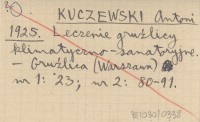 KUCZEWSKI Antoni
1925. Leczenie gruźlicy
klimatyczno-sanatoryjne.
- Gruźlica (Warszawa)
nr 1: 23; nr 2: 80-91.